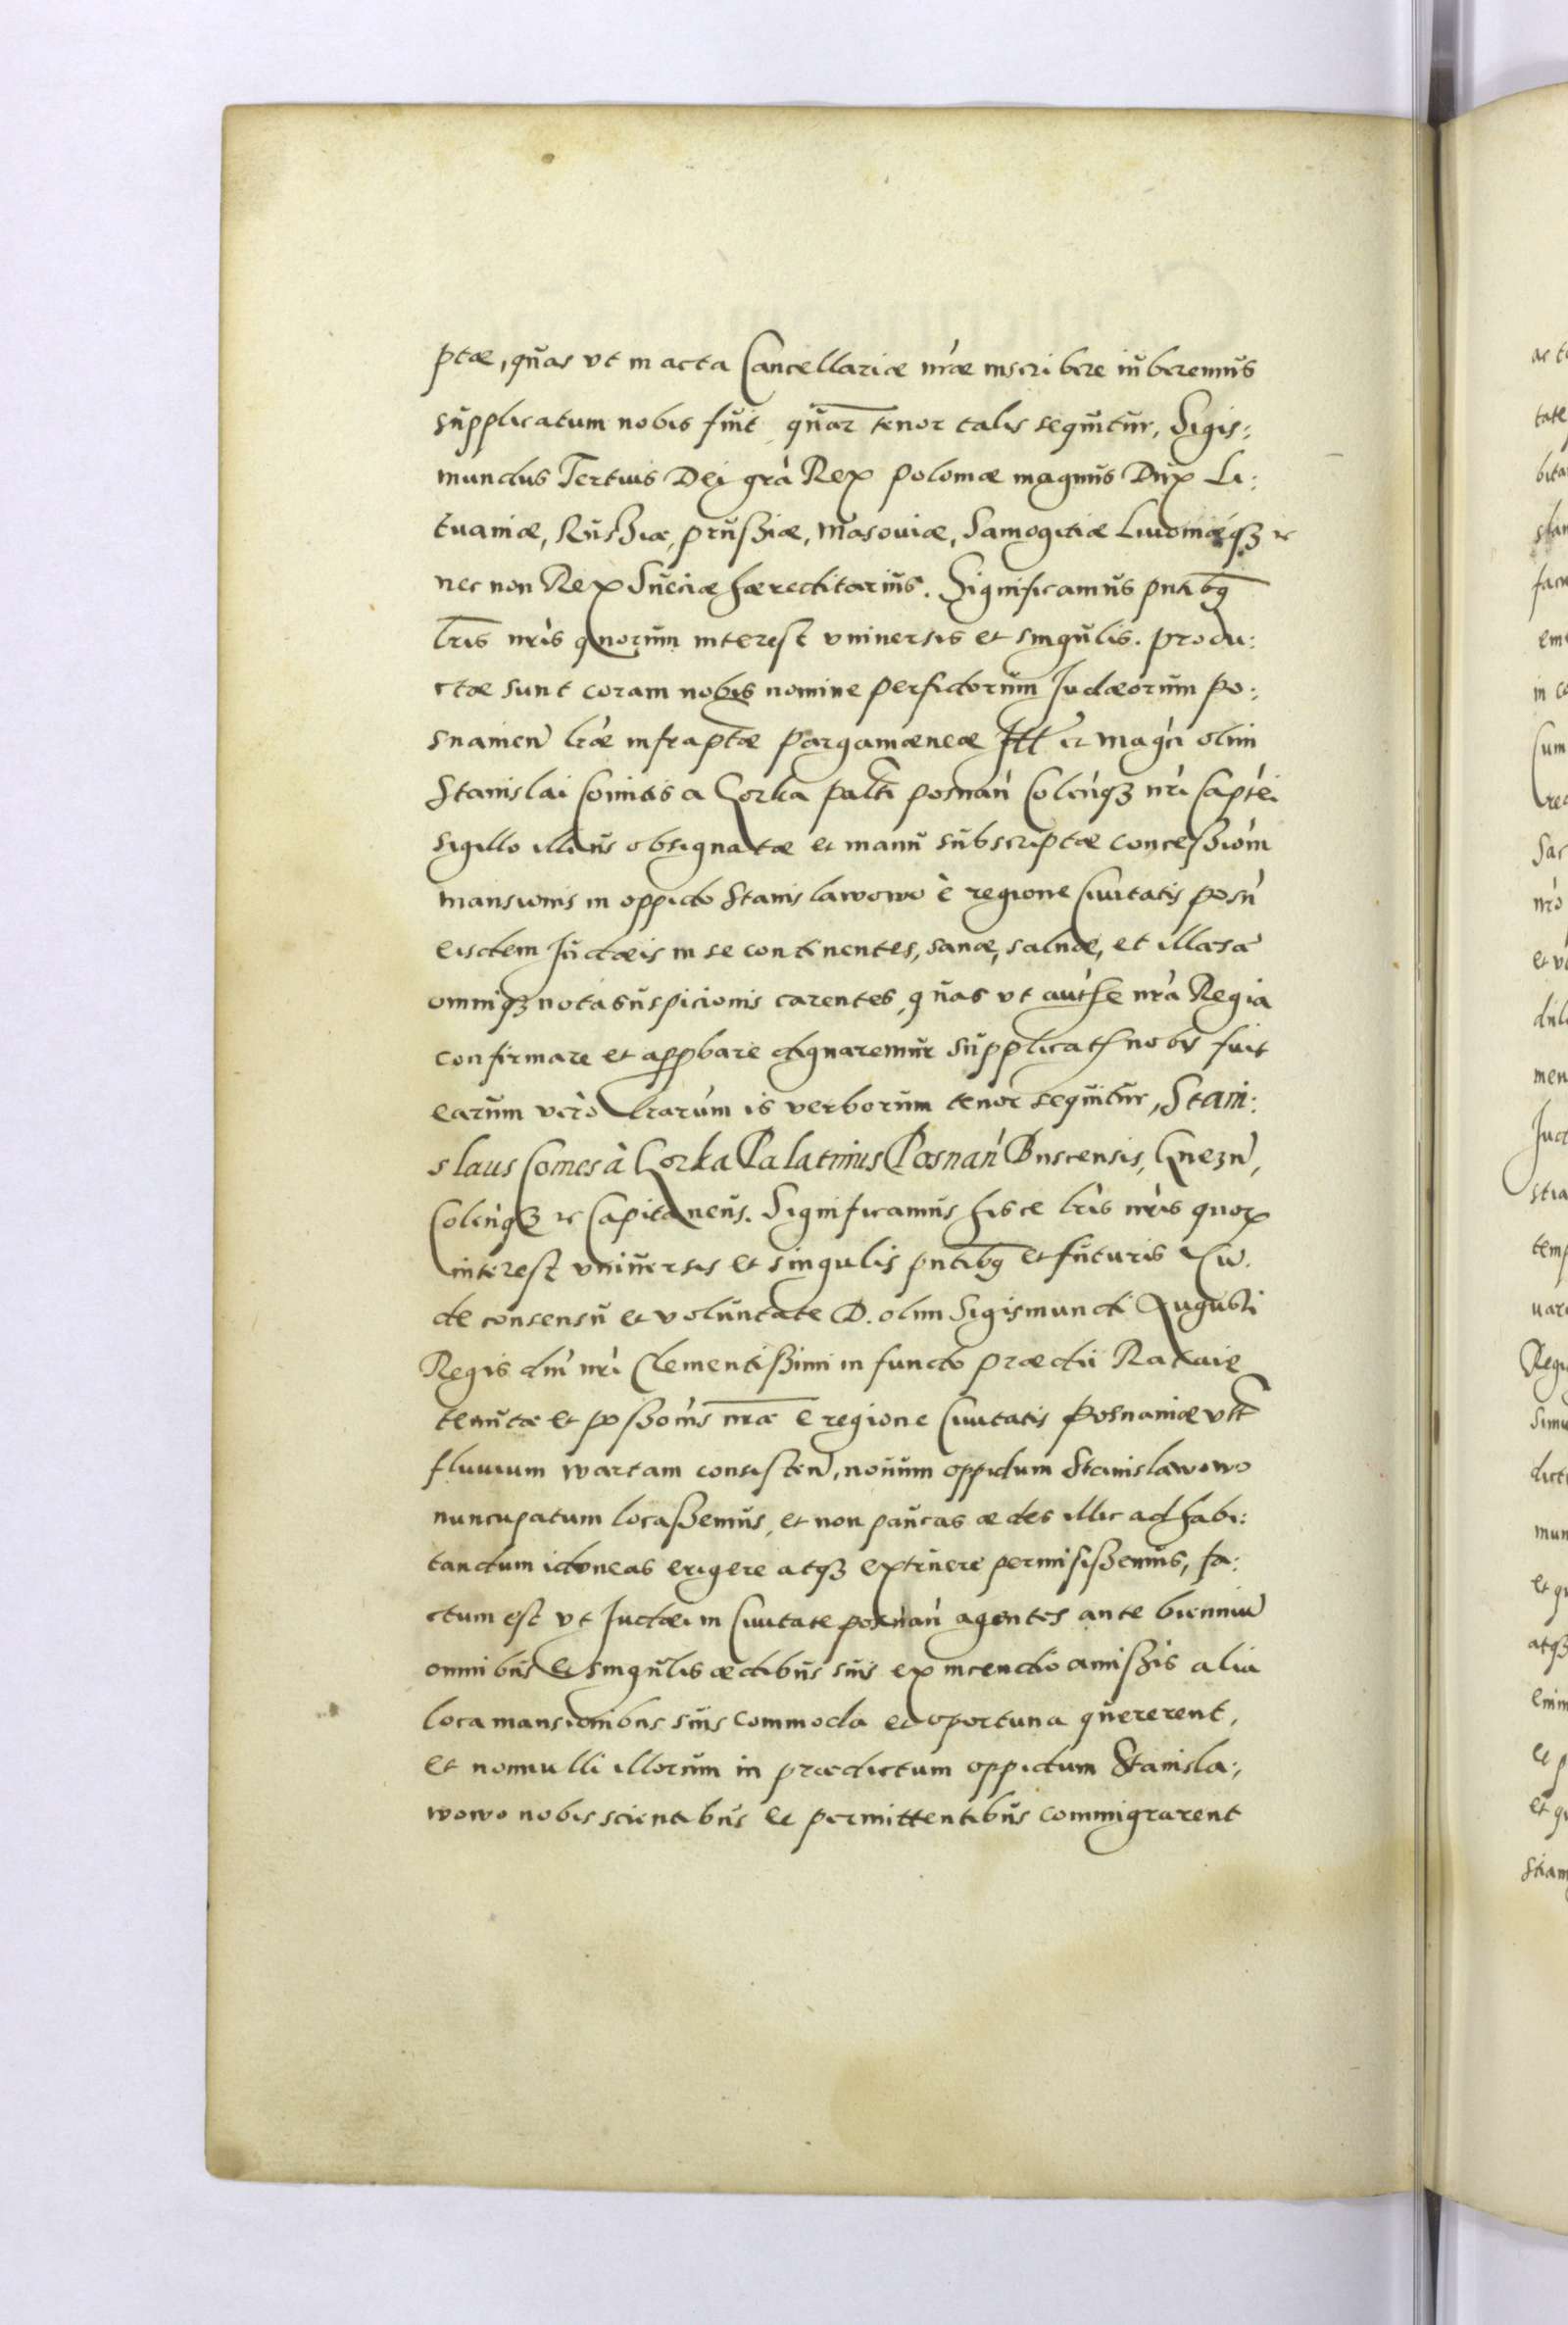 ptæ, quas vt in acta Cancellariæ nr̃æ inscribere iuberemus
supplicatum nobis fuit, quar̃ tenor talis sequitur, Sigis:
mundus Tertius Dei grã Rex Poloniæ magnus Dux Li:
tuaniæ, Rußiæ, Prußiæ, Masouiæ, Samogitiæ Liuoniæq́ꝫ ꝛc
nec non Rex Sueciæ hæreditarius. Significamus pñtibꝫ
lr̃is nr̃is quorum interest vniuersis et singulis. Produ:
ctæ sunt coram nobis nomine perfidorum Judæorum Po:
snanien̄ lr̃æ infraptæ Pargamæneæ Ill et magci olim
Stanislai Comitis a Gorka Palti Posnan̄ Colen̄qꝫ nr̃i Captei
sigillo illius obsignatæ et manu subscriptæ conceßiom̄
mansionis in oppido Stanislawowo è regione Ciuitatis Posn̄
eisdem Judæis in se continentes, sanæ, saluæ, et illæsæ
omniqꝫ nota suspicionis carentes, quas vt aut́he nr̃a Regia
confirmare et approbare dignaremur supplicatū nobis fuit
earum verò lr̃arum is verborum tenor sequitur, Stani:
slaus Comes à Gorka Palatinus Posnan̄ Buscensis, Gnezn̄,
Colen̄qꝫ ꝛc Capitaneus. Significamus hisce lr̃is nr̃is quoꝝ
interest vniuersis et singulis pñtibꝫ et futuris Cū.
de consensu et voluntate D. olim Sigismundi Augusti
Regis dni nr̃i Clementißimi in fundo prædii Rataie
tenutæ et poßionis nr̃æ e regione Ciuitatis Posnaniæ vlt
fluuium wartam consisten̄, nouum oppidum Stanislawowo
nuncupatum locaßemus, et non paucas ædes illic ad habi:
tandum idoneas erigere atqꝫ extruere permisißemus, fa:
ctum est vt Judæi in Ciuitate posnan̄ agentes ante bienniū
omnibus et singulis ædibus suis ex incendio amißis alia
loca mansionibus suis commoda et oportuna quererent,
et nonnulli illorum in prædictum oppidum Stanisla:
wowo nobis scientibus et permittentibus commigrarent